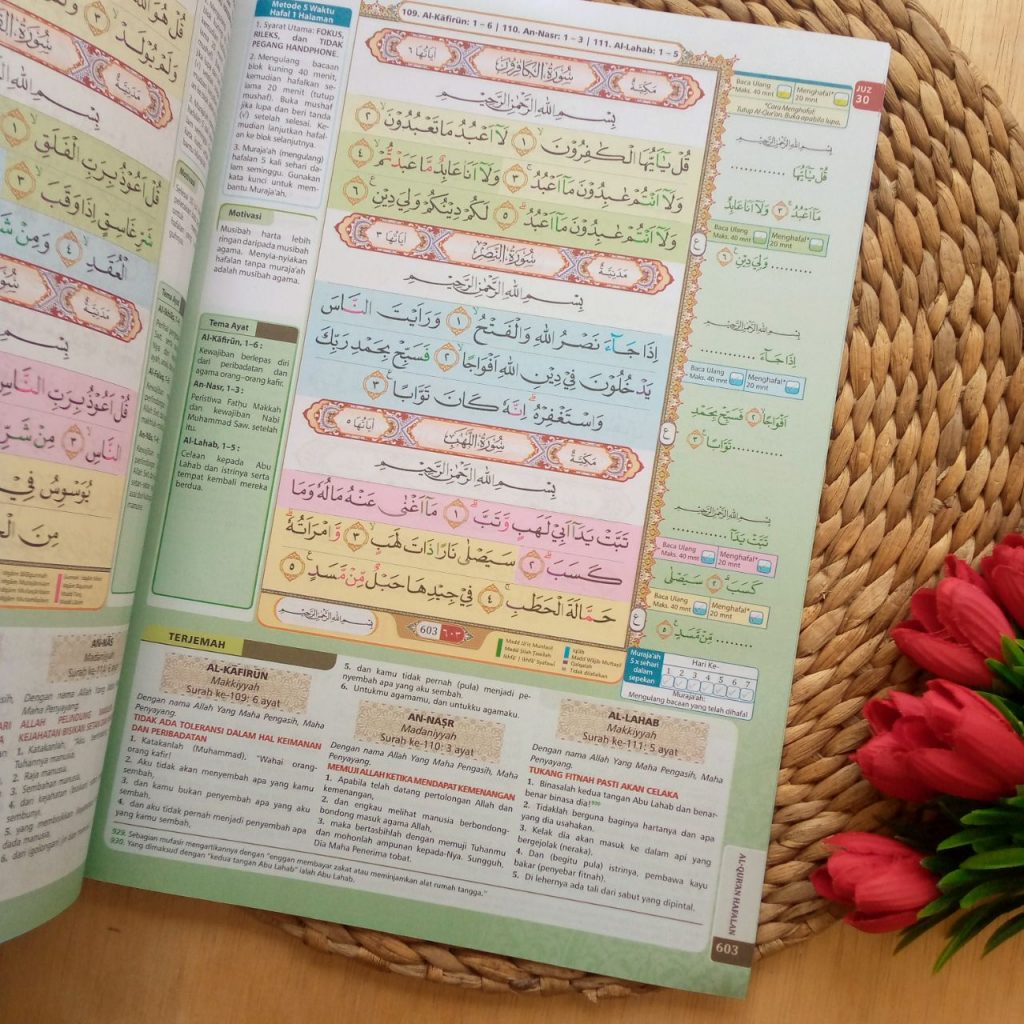 Metode 5 Waktu
Hafal 1 Halaman
1. Syarat Utama: FOKUS,
RILEKS, dan TIDAK
PEGANG HANDPHONE.
2. Mengulang bacaan
blok kuning 40 menit,
kemudian hafalkan se-
lama 20 menit (tutup
mushaf). Buka mushaf
jika lupa dan beri tanda
(√) setelah selesai. Ke-
mudian lanjutkan hafal-
an ke blok selanjutnya.
3. Muraja'ah (mengulang)
hafalan 5 kali sehari da-
lam seminggu. Gunakan
kata kunci untuk mem-
bantu Muraja'ah.
Motivasi
Musibah harta lebih
ringan daripada musibah
agama. Menyia-nyiakan
hafalan tanpa muraja'ah
adalah musibah agama.
Tema Ayat
Al-Kāfirūn, 1–6 :
Kewajiban berlepas diri
dari peribadatan dan
agama orang-orang kafir.
An-Nasr, 1–3 :
Peristiwa Fathu Makkah
dan kewajiban Nabi
Muhammad Saw. setelah
itu.
Al-Lahab, 1–5 :
Celaan kepada Abu
Lahab dan istrinya serta
tempat kembali mereka
berdua.
109. Al-Kāfirūn: 1 – 6 | 110. An-Nasr: 1 – 3 | 111. Al-Lahab: 1 – 5
مَكِّيَّةٌ سُوْرَةُ الْكَافِرُوْنَ اٰيَاتُهَا ٦
بِسْمِ اللّٰهِ الرَّحْمٰنِ الرَّحِيْمِ
قُلْ يٰٓاَيُّهَا الْكٰفِرُوْنَ ١ لَآ اَعْبُدُ مَا تَعْبُدُوْنَ ٢
وَلَآ اَنْتُمْ عٰبِدُوْنَ مَآ اَعْبُدُ ٣ وَلَآ اَنَا۠ عَابِدٌ مَّا عَبَدْتُّمْ ٤
وَلَآ اَنْتُمْ عٰبِدُوْنَ مَآ اَعْبُدُ ٥ لَكُمْ دِيْنُكُمْ وَلِيَ دِيْنِ ٦
مَدَنِيَّةٌ سُوْرَةُ النَّصْرِ اٰيَاتُهَا ٣
بِسْمِ اللّٰهِ الرَّحْمٰنِ الرَّحِيْمِ
اِذَا جَاۤءَ نَصْرُ اللّٰهِ وَالْفَتْحُ ١ وَرَاَيْتَ النَّاسَ
يَدْخُلُوْنَ فِيْ دِيْنِ اللّٰهِ اَفْوَاجًا ٢ فَسَبِّحْ بِحَمْدِ رَبِّكَ
وَاسْتَغْفِرْهُ اِنَّهٗ كَانَ تَوَّابًا ٣
مَكِّيَّةٌ سُوْرَةُ اللَّهَبِ اٰيَاتُهَا ٥
بِسْمِ اللّٰهِ الرَّحْمٰنِ الرَّحِيْمِ
تَبَّتْ يَدَآ اَبِيْ لَهَبٍ وَّتَبَّ ١ مَآ اَغْنٰى عَنْهُ مَالُهٗ وَمَا
كَسَبَ ٢ سَيَصْلٰى نَارًا ذَاتَ لَهَبٍ ٣ وَّامْرَاَتُهٗ
حَمَّالَةَ الْحَطَبِ ٤ فِيْ جِيْدِهَا حَبْلٌ مِّنْ مَّسَدٍ ٥
603 ٦٠٣
JUZ
30
Baca Ulang
Maks. 40 mnt
Menghafal*
20 mnt
*Cara Menghafal:
Tutup Al-Qur'an. Buka apabila lupa.
بِسْمِ اللّٰهِ الرَّحْمٰنِ الرَّحِيْمِ
قُلْ يٰٓاَيُّهَا ............
مَآ اَعْبُدُ ٣ وَلَآ اَنَا۠ عَابِدٌ
Baca Ulang
Maks. 40 mnt
Menghafal*
20 mnt
.......... وَلِيَ دِيْنِ ٦
بِسْمِ اللّٰهِ الرَّحْمٰنِ الرَّحِيْمِ
اِذَا جَاۤءَ ............
Baca Ulang
Maks. 40 mnt
Menghafal*
20 mnt
اَفْوَاجًا ٢ فَسَبِّحْ بِحَمْدِ
............ تَوَّابًا ٣
بِسْمِ اللّٰهِ الرَّحْمٰنِ الرَّحِيْمِ
تَبَّتْ يَدَآ ............
Baca Ulang
Maks. 40 mnt
Menghafal*
20 mnt
كَسَبَ ٢ سَيَصْلٰى
Baca Ulang
Maks. 40 mnt
Menghafal*
20 mnt
.......... مِّنْ مَّسَدٍ ٥
Muraja'ah
5 x sehari
dalam
sepekan
Hari Ke-
1 2 3 4 5 6 7
Muraja'ah:
Mengulang bacaan yang telah dihafal
TERJEMAH
AL-KĀFIRŪN
Makkiyyah
Surah ke-109: 6 ayat
Dengan nama Allah Yang Maha Pengasih, Maha
Penyayang.
TIDAK ADA TOLERANSI DALAM HAL KEIMANAN
DAN PERIBADATAN
1. Katakanlah (Muhammad), "Wahai orang-
orang kafir!
2. Aku tidak akan menyembah apa yang kamu
sembah,
3. dan kamu bukan penyembah apa yang aku
sembah,
4. dan aku tidak pernah menjadi penyembah apa
yang kamu sembah,
5. dan kamu tidak pernah (pula) menjadi pe-
nyembah apa yang aku sembah.
6. Untukmu agamamu, dan untukku agamaku.
AN-NAṢR
Madaniyyah
Surah ke-110: 3 ayat
Dengan nama Allah Yang Maha Pengasih, Maha
Penyayang.
MEMUJI ALLAH KETIKA MENDAPAT KEMENANGAN
1. Apabila telah datang pertolongan Allah dan
kemenangan,
2. dan engkau melihat manusia berbondong-
bondong masuk agama Allah,
3. maka bertasbihlah dengan memuji Tuhanmu
dan mohonlah ampunan kepada-Nya. Sungguh,
Dia Maha Penerima tobat.
AL-LAHAB
Makkiyyah
Surah ke-111: 5 ayat
Dengan nama Allah Yang Maha Pengasih, Maha
Penyayang.
TUKANG FITNAH PASTI AKAN CELAKA
1. Binasalah kedua tangan Abu Lahab dan benar-
benar binasa dia!930
2. Tidaklah berguna baginya hartanya dan apa
yang dia usahakan.
3. Kelak dia akan masuk ke dalam api yang
bergejolak (neraka).
4. Dan (begitu pula) istrinya, pembawa kayu
bakar (penyebar fitnah).
5. Di lehernya ada tali dari sabut yang dipintal.
929. Sebagian mufasir mengartikannya dengan "enggan membayar zakat atau meminjamkan alat rumah tangga."
930. Yang dimaksud dengan "kedua tangan Abu Lahab" ialah Abu Lahab.
AL-QUR'AN HAFALAN
603